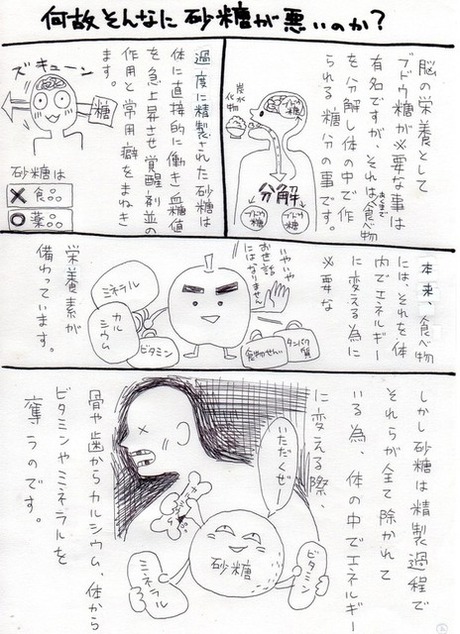 何故そんなに砂糖が悪いのか？
脳の栄養として
ブドウ糖が必要な事は
有名ですが、それは食べ物
あくまで
を分解し体の中で作
られる糖分の事です。
炭水
化物
ブドウ
糖
分解
ブドウ
糖
ブドウ
糖
過度に精製された砂糖は
体に直接的に働き血糖値
を急上昇させ覚醒剤並の
作用と常用癖をまねき
ます。
ズキューン
糖
砂糖は
×食品
○薬品
本来、食べ物
には、それを体
内でエネルギー
に変える為に
必要な
いやいや
お世話
にはなりません
タンパク
質
食物せんい
ミネラル
カル
シウム
ビタミン
栄養素が
備わっています。
しかし砂糖は精製過程で
それらが全て除かれて
いる為、体の中でエネルギー
に変える際、
いただくぜー
砂糖
ビタミン
ミネラル
骨や歯からカルシウム、体から
ビタミンやミネラルを
奪うのです。